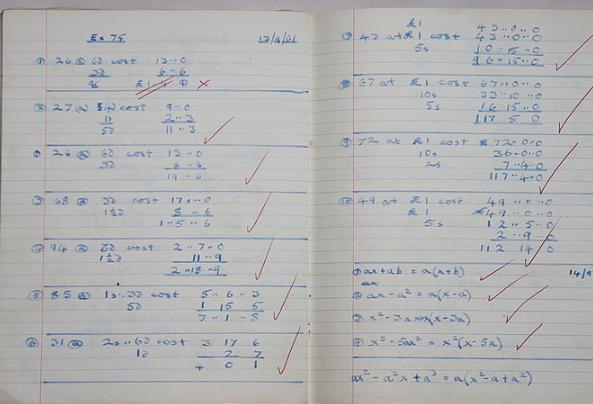 Ex 75 12/9/61
① 26 @ 6d cost 13..0
3d 6..6
② 27 @ 4d cost 9..0
1d 2..3
5d 11..3
26 @ 6d cost 13..0
3d 6..6
19..6
③ 68 @ 3d cost 17..0
1½d 8..6
1..5..6
94 @ cost 2..7..0
1½d 11..9
2..18..9
⑤ 85 @ 1s..3d cost 5..6..3
5d 1 15 5
7..1..8
⑥ 31 @ 2s..6d cost 3 17 6
1d 2 7
4 0 1
£1 43..0..0
⑦ 43 at £1 cost 43..0..0
5s 10..15..0
96..15..0
⑧ 67 at £1 cost 67..0..0
10s 33..10..0
5s 16 15..0
117 5 0
⑨ 72 at £1 cost £72..0..0
10s 36..0..0
2s 7..4..0
⑩ 49 at £1 cost 49..0..0
£1 49..0..0
5s 12..5..0
2..9..0
112 14 0
① ax+ab = a(x+b) 14/9
② ax-a² = a(x-a)
④ x³-5ax² = x²(x-5a)
ax²-a²x+a³ = a(x²-ax+a²)